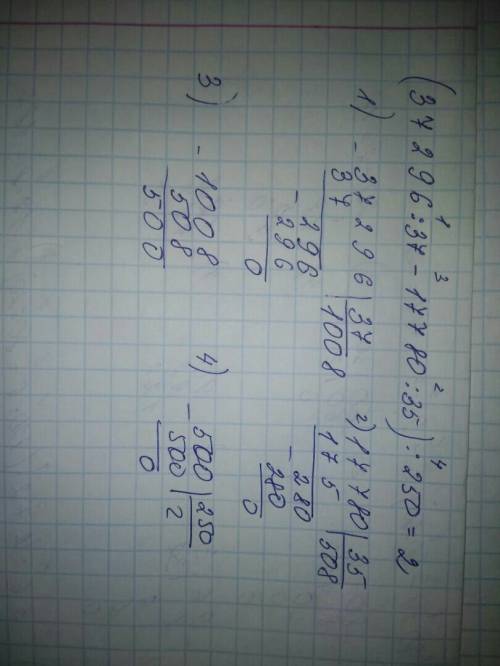 (37296:37-17780:35):250=2
1 3 2 4
1) - 37296 | 37
37 | 1008
- 296
296
0
2) 17780 | 35
175 | 508
- 280
280
0
3) - 1008
508
500
4) - 500 | 250
500 | 2
0